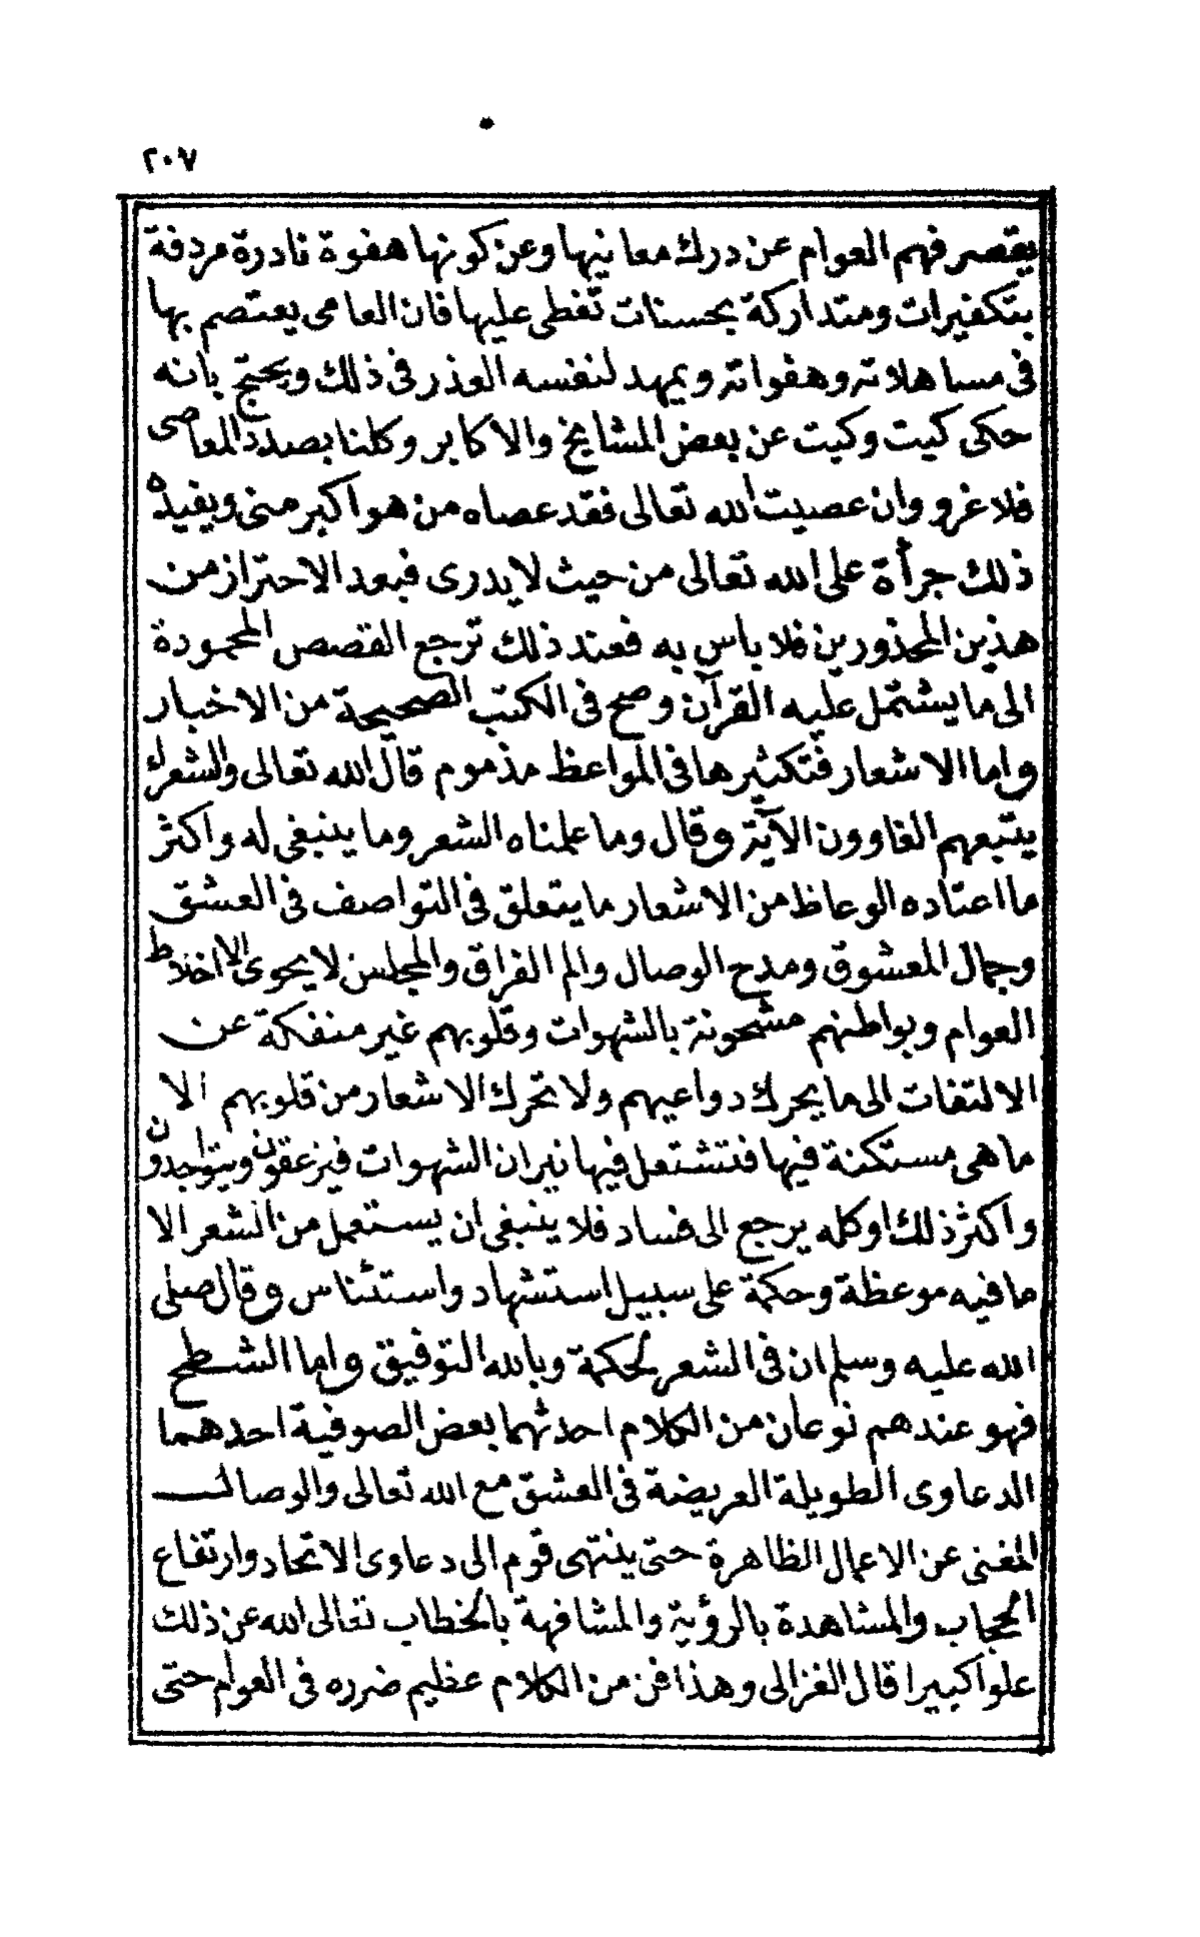 ٢٠٧
يقصر فهم العوام عن درك معانيها وعن كونها هفوة نادرة مردفة
بتكفيرات ومتداركة بحسنات تغطى عليها فان العامى يعتصم بها
فى مساهلاته وهفواته ويمهد لنفسه العذر فى ذلك ويحتج بانه
حكى كيت وكيت عن بعض المشايخ والاكابر وكلنا بصدد المعاصى
فلا غرو وان عصيت الله تعالى فقد عصاه من هو اكبر منى ويفيده
ذلك جرأة على الله تعالى من حيث لا يدرى فبعد الاحتراز من
هذين المحذورين فلا باس به فعند ذلك ترجع القصص المحمودة
الى ما يشتمل عليه القرآن وصح فى الكتب الصحيحة من الاخبار
واما الاشعار فتكثيرها فى المواعظ مذموم قال الله تعالى والشعراء
يتبعهم الغاوون الآية وقال وما علمناه الشعر وما ينبغى له واكثر
ما اعتاده الوعاظ من الاشعار ما يتعلق فى التواصف فى العشق
وجمال المعشوق ومدح الوصال والم الفراق والمجلس لا يحوى الا اخلاط
العوام وبواطنهم مشحونة بالشهوات وقلوبهم غير منفكة عن
الالتفات الى ما يحرك دواعيهم ولا تحرك الاشعار من قلوبهم الا
ما هى مستكنة فيها فتشتعل فيها نيران الشهوات فيزعقون ويتواجدون
واكثر ذلك او كله يرجع الى فساد فلا ينبغى ان يستعمل من الشعر الا
ما فيه موعظة وحكمة على سبيل استشهاد واستئناس وقال صلى
الله عليه وسلم ان فى الشعر لحكمة وبالله التوفيق واما الشطح
فهو عندهم نوعان من الكلام احدثهما بعض الصوفية احدهما
الدعاوى الطويلة العريضة فى العشق مع الله تعالى والوصال
المغنى عن الاعمال الظاهرة حتى ينتهى قوم الى دعاوى الاتحاد وارتفاع
الحجاب والمشاهدة بالرؤية والمشافهة بالخطاب تعالى الله عن ذلك
علوا كبيرا قال الغزالى وهذا فن من الكلام عظيم ضرره فى العوام حتى